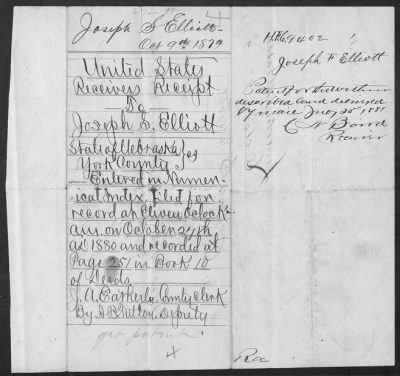 Joseph S Elliott
Oct 9th 1879
United States
Receivers Receipt
To
Joseph S. Elliott
State of Nebraska } ss
York County
Entered on Numer-
ical Index, filed for
record at Eleven O clock
a.m. on October 27th
ad 1880 and recorded at
Page 251 in Book 10
of Deeds.
J. A. Eatherly County Clerk
By Deputy
got patent
x
H.R. 6,9402
Joseph F Elliott
Patent for the within
described land delivered
by me 1880
C N Baird
Receiver
Rec